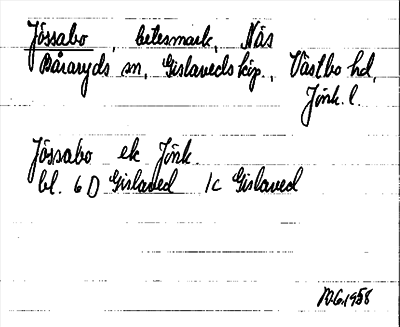 Jössabo, betesmark, Näs
Båraryds sn, Gislaveds köp., Västbo hd,
Jönk. l.
Jössabo ek Jönk.
bl. 6 D Gislaved 1c Gislaved
1958